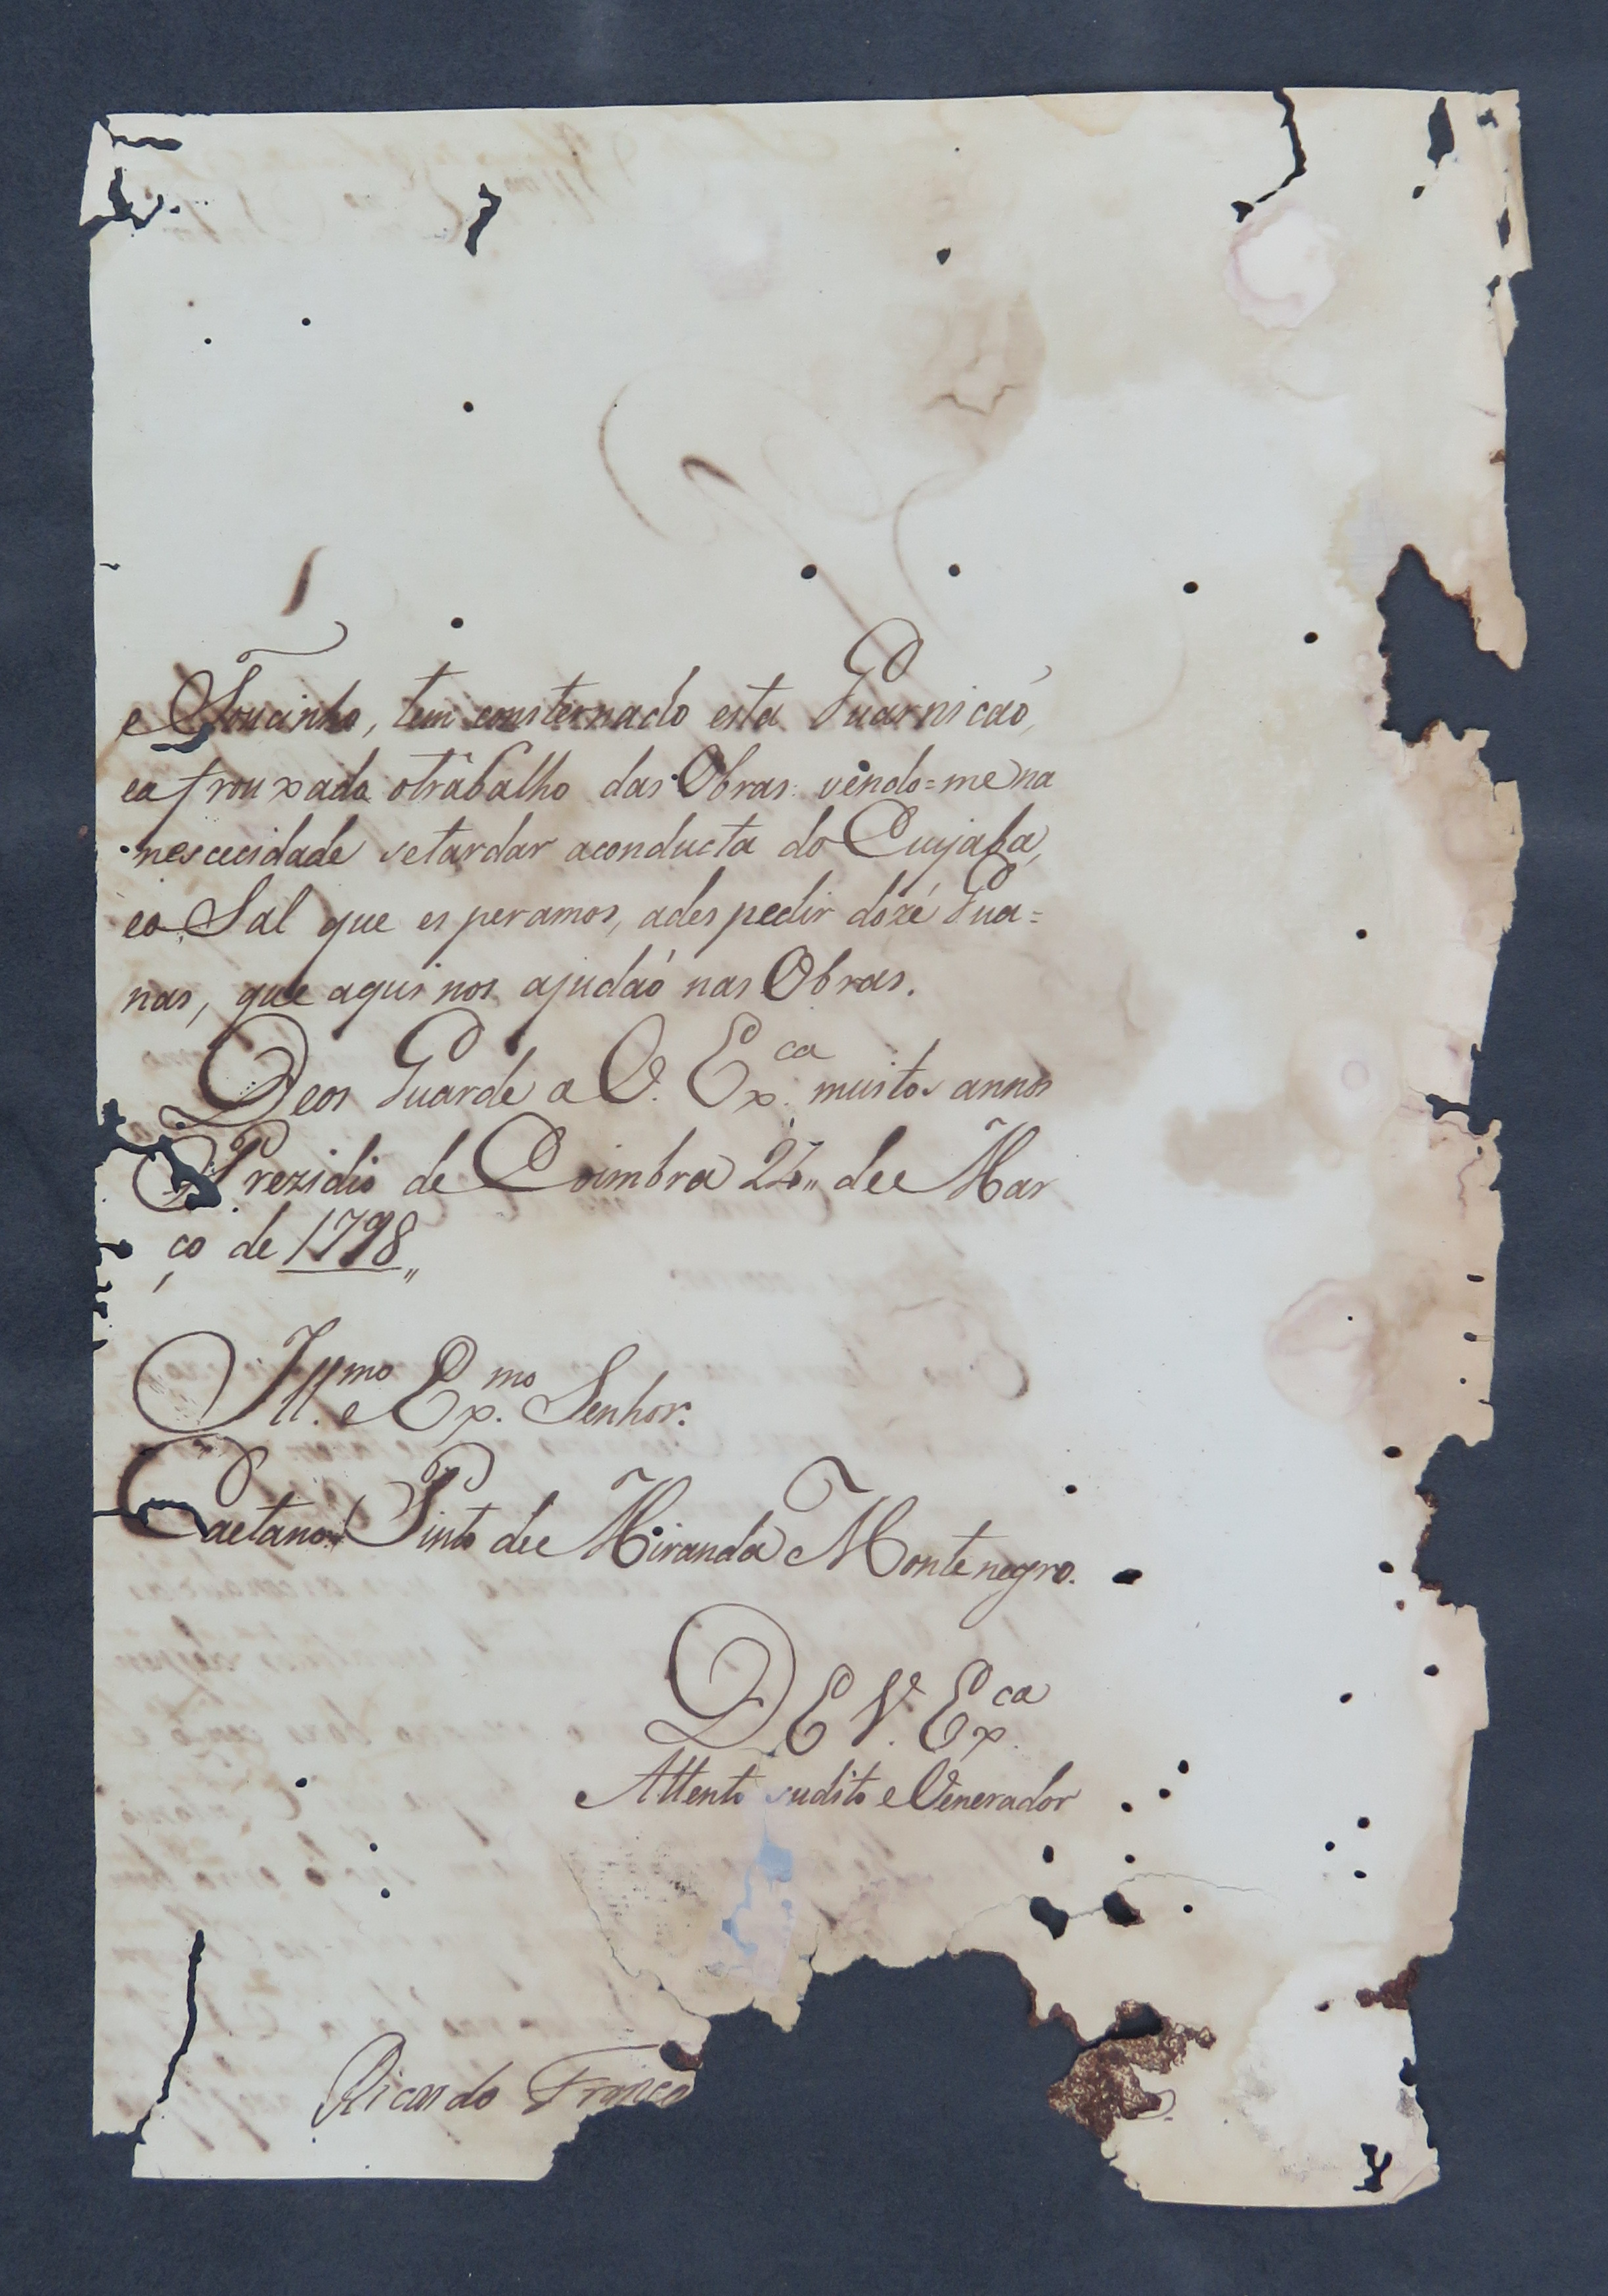 e Toucinho, tem consternado esta Guarnicáo,
ea frouxado otrabalho das Obras: vendo=me na
nescecidade setardar aconducta do Cuyaba,
eo Sal que esperamos, adespedir doze Gua=
nas, que aqui nos ajudáo nas Obras.
Deos Guarde a V. Ex.ca muitos annos
Prezidio de Coimbra 24,, de Mar
ço de 1798,,
Ill.mo e Ex.mo Senhor.
Caetano Pinto de Miranda Montenegro.
DE V. Ex.ca
Attento sudito e Venerador
Ricardo Franco